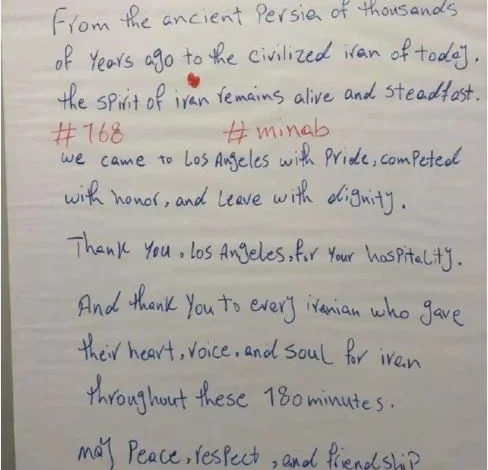 From the ancient Persia of thousands
of years ago to the civilized iran of today.
the spirit of iran remains alive and steadfast.
#168 #minab
we came to Los Angeles with Pride, competed
with honor, and Leave with dignity.
Thank you, Los Angeles, for your hospitality.
And thank you to every iranian who gave
their heart, voice, and soul for iran
throughout these 180 minutes.
may Peace, respect, and friendship